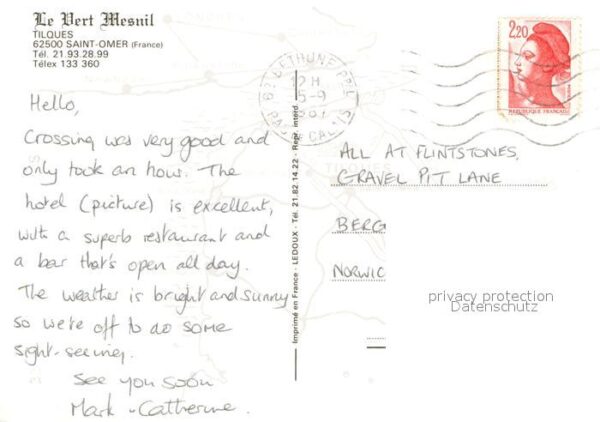 Le Vert Mesnil
TILQUES
62500 SAINT-OMER (France)
Tél. 21.93.28.99
Télex 133 360
Hello,
Crossing was very good and
only took an hour. The
hotel (picture) is excellent,
with a superb restaurant and
a bar that's open all day.
The weather is bright and sunny
so we're off to do some
sight-seeing.
See you soon
Mark + Catherine.
Imprimé en France - LEDOUX - Tél. 21.82.14.22 - Repr. interd.
62 BETHUNE PPAL
12H
5-9
PAS DE CALAIS
2,20
REPUBLIQUE FRANCAISE
ALL AT FLINTSTONES,
GRAVEL PIT LANE
BERG
NORWIC
privacy protection
Datenschutz